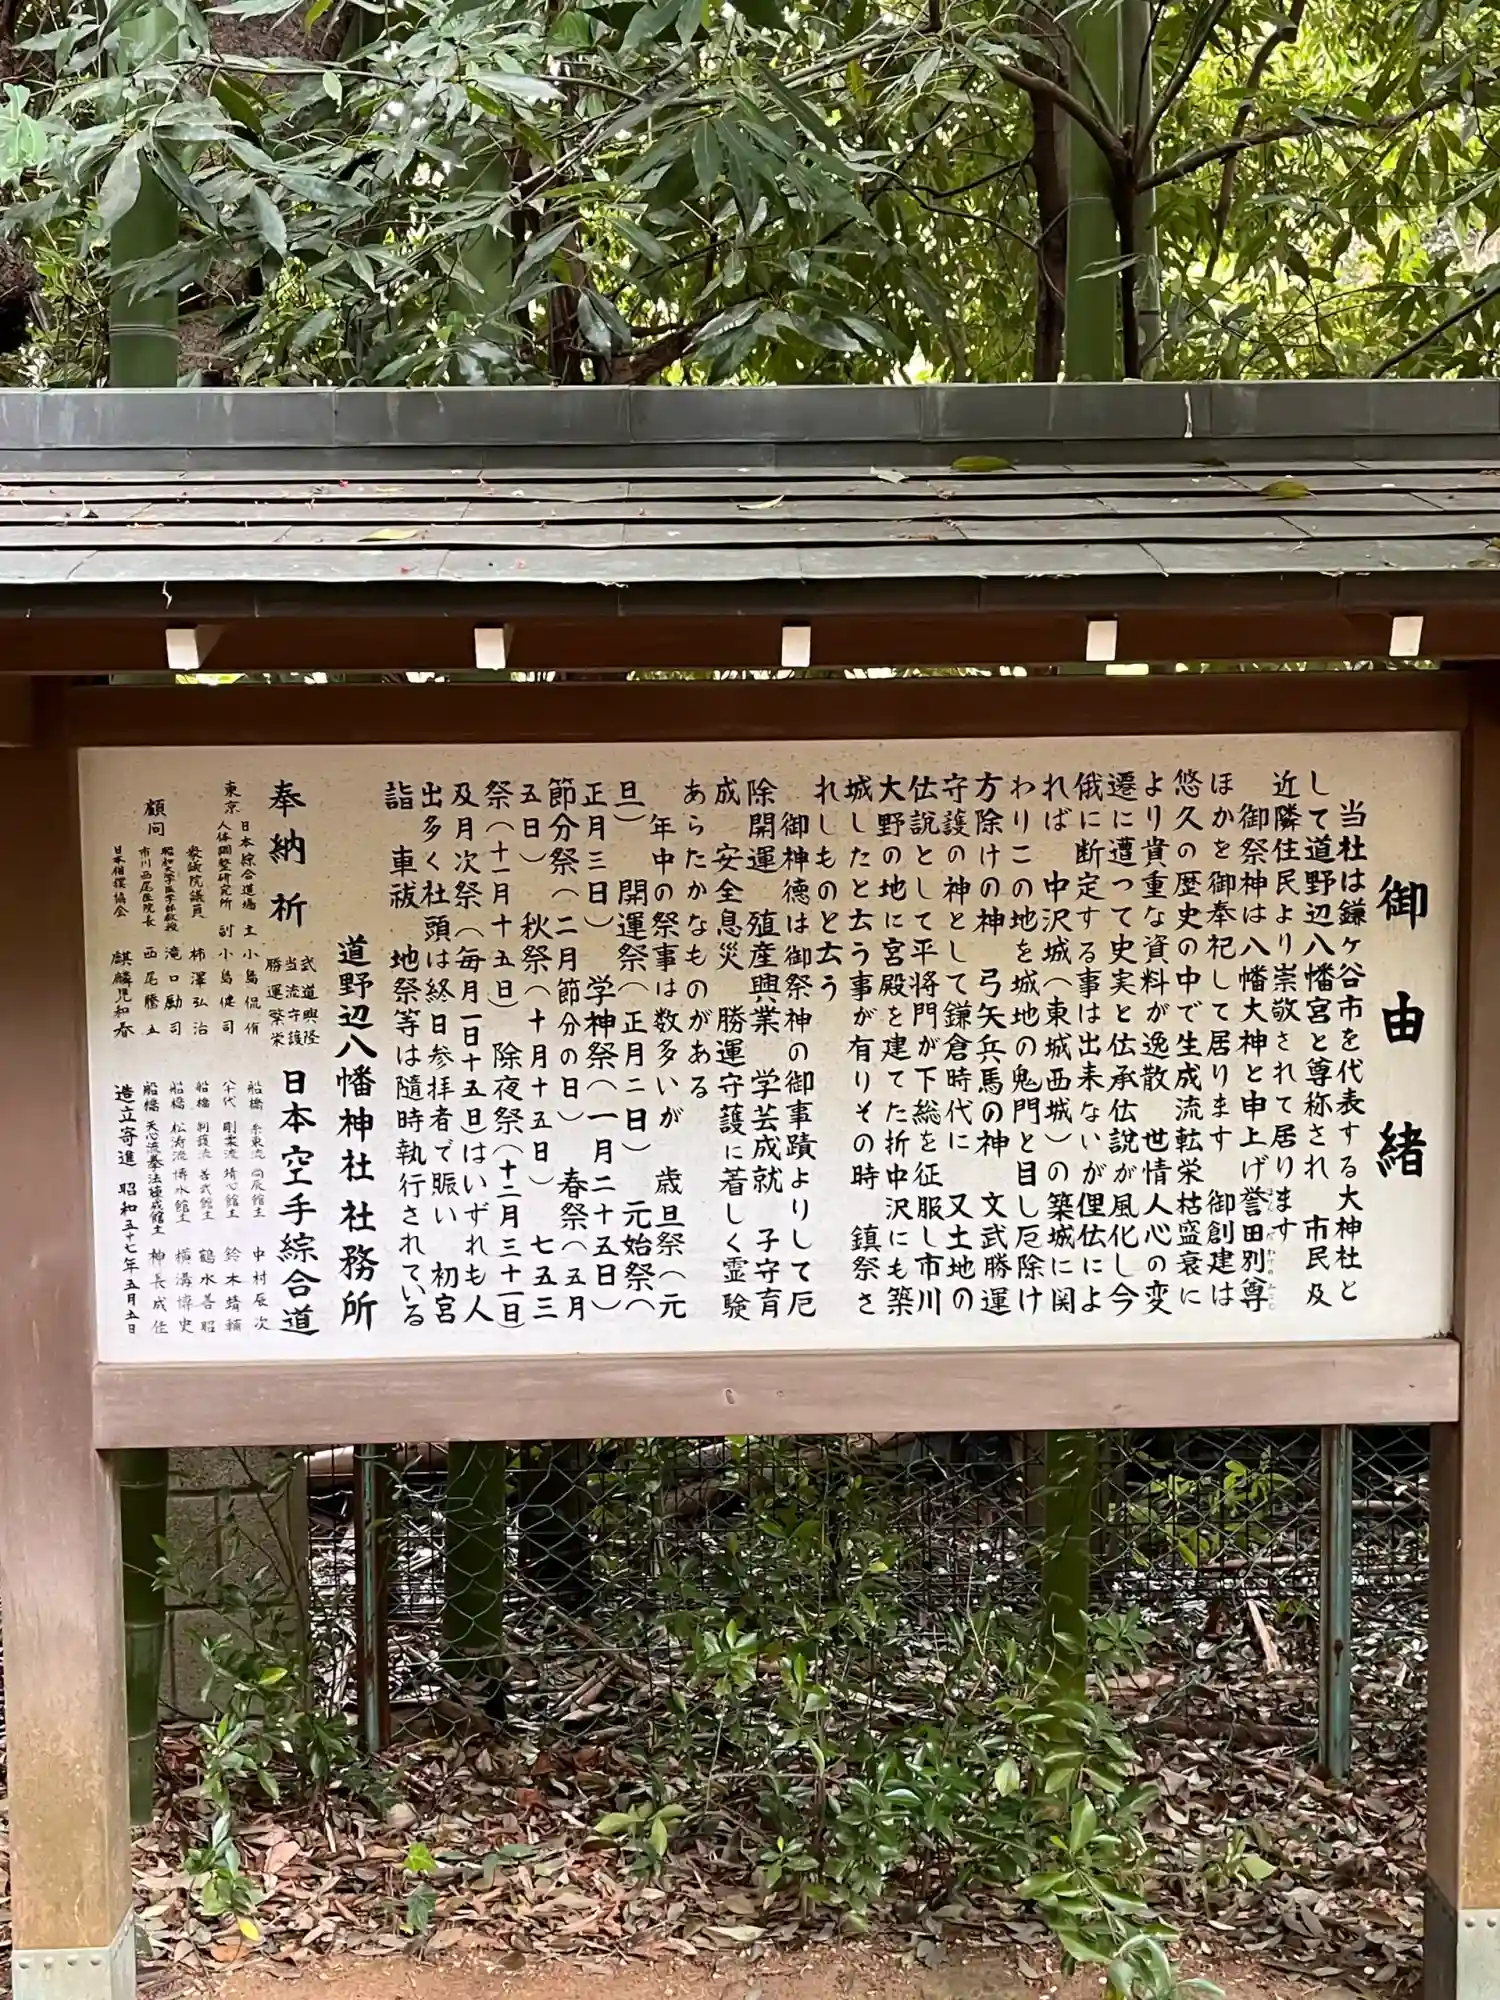 御由緒
当社は鎌ヶ谷市を代表する大神社と
して道野辺八幡宮と尊称され 市民及
近隣住民より崇敬されて居ります
御祭神は八幡大神と申上げ誉田別尊
ほかを御奉祀して居ります 御創建は
悠久の歴史の中で生成流転栄枯盛衰に
より貴重な資料が逸散 世情人心の変
遷に遭って史実と伝承伝説が風化し今
俄に断定する事は出来ないが俚伝によ
れば 中沢城(東城西城)の築城に関
わりこの地を城地の鬼門と目し厄除け
方除けの神 弓矢兵馬の神 文武勝運
守護の神として鎌倉時代に 又土地の
伝説として平将門が下総を征服し市川
大野の地に宮殿を建てた折中沢にも築
城したと云う事が有りその時 鎮祭さ
れしものと云う
御神徳は御祭神の御事蹟よりして厄
除開運 殖産興業 学芸成就 子守育
成 安全息災 勝運守護に着しく霊験
あらたかなものがある
年中の祭事は数多いが 歳旦祭(元
旦) 開運祭(正月二日) 元始祭(
正月三日) 学神祭(一月二十五日)
節分祭(二月節分の日) 春祭(五月
五日) 秋祭(十月十五日) 七五三
祭(十一月十五日) 除夜祭(十二月三十一日)
及月次祭(毎月一日十五日)はいずれも人
出多く社頭は終日参拝者で賑い 初宮
詣 車祓 地祭等は随時執行されている
道野辺八幡神社社務所
奉納 祈 武道興隆
当流守護
勝運繁栄 日本空手綜合道
東京 日本綜合道場 主 小島侃侑
人体調整研究所 副 小島健司
衆議院議員 柿澤弘治
昭和大学医学部教授 滝口勤司
顧問 市川西尾医院長 西尾騰五
日本相撲協会 麒麟児和春
船橋 糸東流 尚辰館主 中村辰次
八千代 剛柔流 靖心館主 鈴木靖輔
船橋 善武館主 鶴水善昭
船橋 松涛流 博水館主 横溝博史
船橋 天心流拳法種成館主 神長成佳
造立寄進 昭和五十七年五月五日